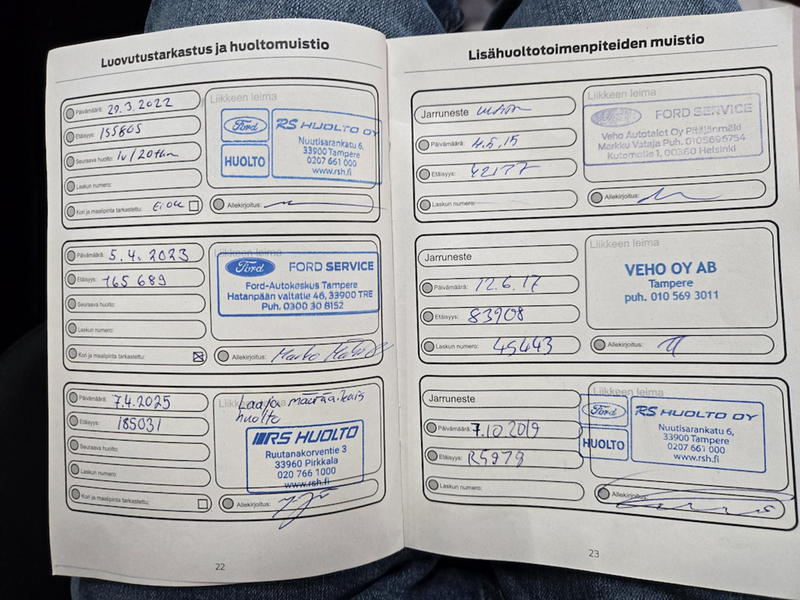 Luovutustarkastus ja huoltomuistio
Päivämäärä: 29.3.2022
Etäisyys: 155805
Seuraava huolto: 1v/20tkm
Laskun numero:
Kori ja maalipinta tarkastettu: Ei ole
Liikkeen leima
Ford
HUOLTO
RS HUOLTO OY
Nuutisarankatu 6,
33900 Tampere
0207 661 000
www.rsh.fi
Allekirjoitus:
Päivämäärä: 5.4.2023
Etäisyys: 165 689
Seuraava huolto:
Laskun numero:
Kori ja maalipinta tarkastettu:
Liikkeen leima
Ford FORD SERVICE
Ford-Autokeskus Tampere
Hatanpään valtatie 46, 33900 TRE
Puh. 0300 30 8152
Allekirjoitus:
Päivämäärä: 7.4.2025
Etäisyys: 185031
Seuraava huolto:
Laskun numero:
Kori ja maalipinta tarkastettu:
Laaja määräaikais
huolto
RS HUOLTO
Ruutanakorventie 3
33960 Pirkkala
020 766 1000
www.rsh.fi
Allekirjoitus:
22
Lisähuoltotoimenpiteiden muistio
Jarruneste
Päivämäärä: 4.5.15
Etäisyys: 42177
Laskun numero:
Liikkeen leima
FORD SERVICE
Veho Autotalot Oy Pitäjänmäki
Markku Vataja Puh. 0105696754
Kutomotie 1, 00380 Helsinki
Allekirjoitus:
Jarruneste
Päivämäärä: 12.6.17
Etäisyys: 83908
Laskun numero: 45443
Liikkeen leima
VEHO OY AB
Tampere
puh. 010 569 3011
Allekirjoitus:
Jarruneste
Päivämäärä: 7.10.2019
Etäisyys:
Laskun numero:
Liikkeen leima
Ford
HUOLTO
RS HUOLTO OY
Nuutisarankatu 6,
33900 Tampere
0207 661 000
www.rsh.fi
Allekirjoitus:
23